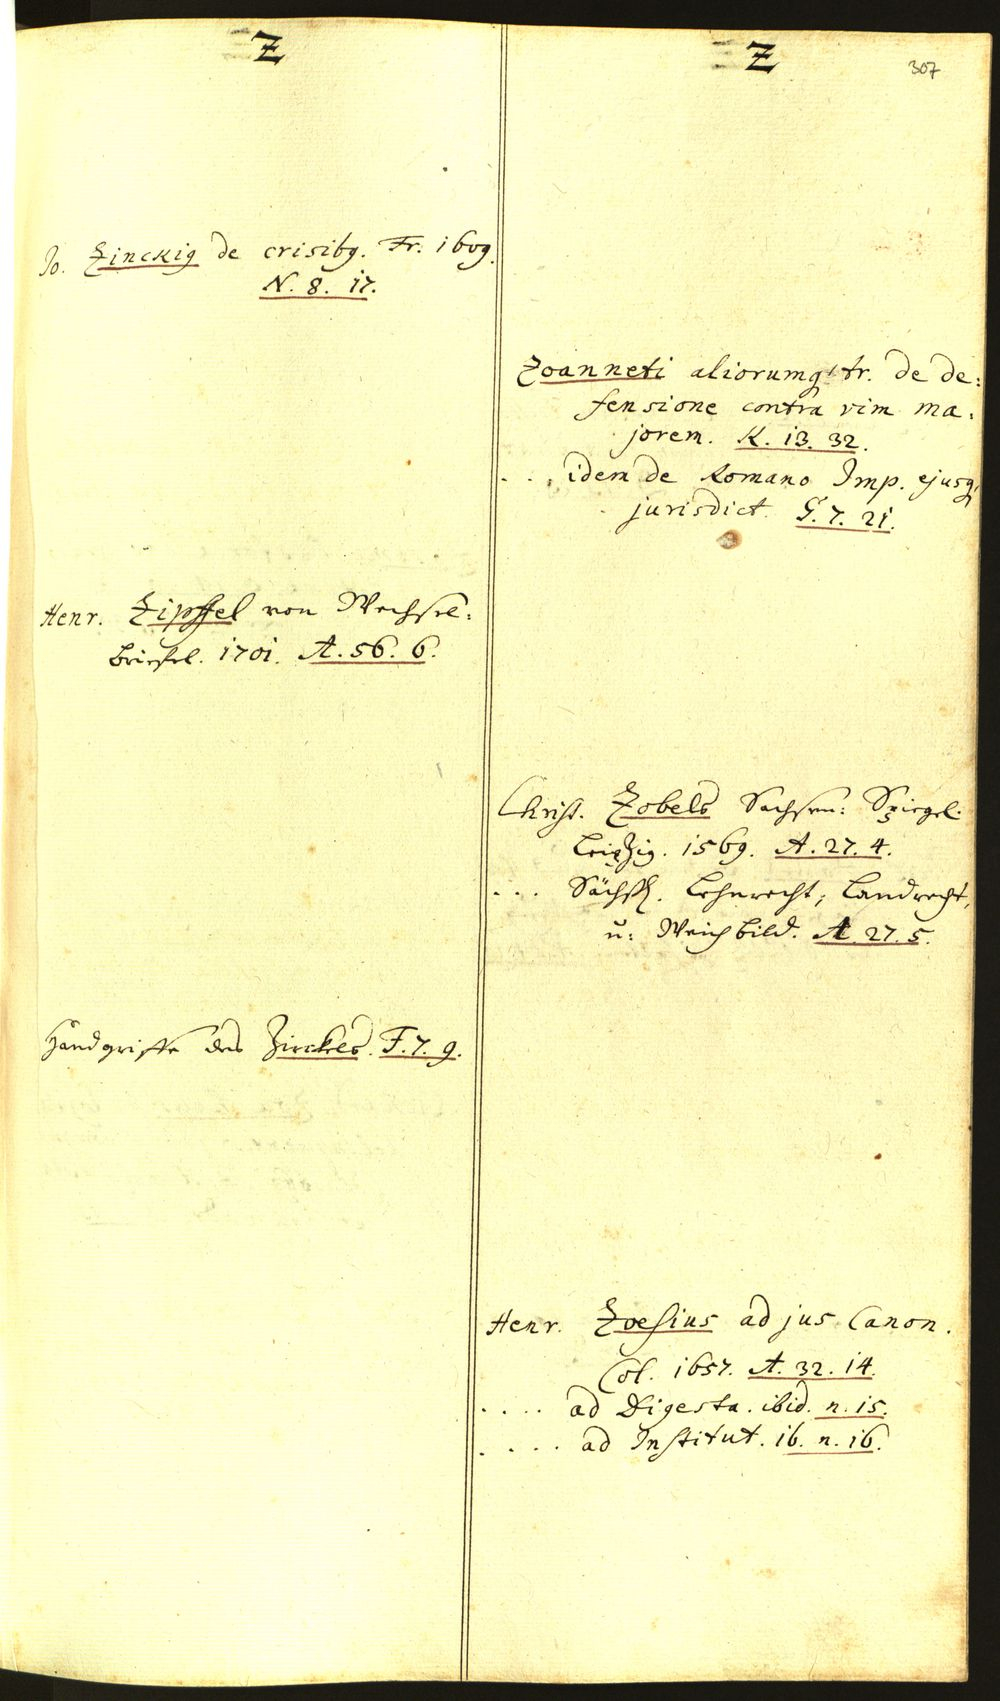 Z
Jo. Zinckig de crisibg. Fr. 1609.
N. 8. 17.
Henr. Zipffel von Wechsel:
briefen. 1701. A. 56. 6.
Handgriffe des Zirckels. F. 7. 9.
Z
307
Zoanneti aliorumq; tr. de de:
fensione contra vim ma:
jorem. K. 13. 32.
. . . idem de Romano Imp. ejusq;
jurisdict. G. 7. 21.
Christ. Zobels Sachsen: Spiegel.
Leipzig. 1569. A. 27. 4.
. . . Sächß. Lehnrecht, Landrecht,
u: Weichbild. A. 27. 5.
Henr. Zoesius ad jus Canon.
Col. 1657. A. 32. 14.
. . . . ad Digesta. ibid. n. 15.
. . . . ad Institut. ib. n. 16.